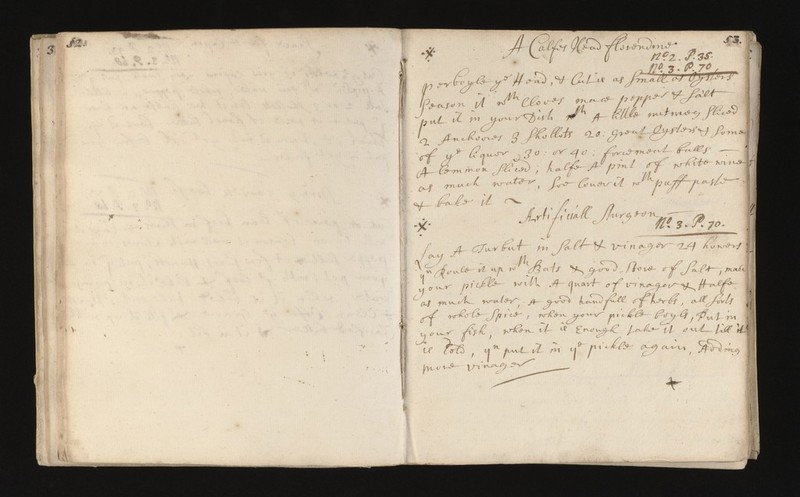 3
52
53
A Calfes Head florendine
No. 2. P. 35.
No. 3. P. 70
perboyle ye Head, & Cut it as Small as Oysters
Season it wth Cloves mace pepper & Salt
put it in your Dish wth A little nutmeg Sliced
2 Anchovies 3 Shollots 20: great Oysters & Some
of ye liquor 30: or 40: forcement balls
A Lemmon Sliced, halfe A pint of white wine
as much water, Soe Cover it wth puff paste
& bake it
Artificiall Sturgeon
No. 3. P. 70.
Lay A Turbut in Salt & vinager 24 howers
yn Roule it up wth & good Store of Salt, make
your pickle with A quart of vinager & Halfe
as much water, A good handfull of herbs, all Sorts
of whole Spice, when your pickle boyls, Put in
your fish, when it is Enough take it out till it
is Cold, yn put it in ye pickle again, Adding
more vinager